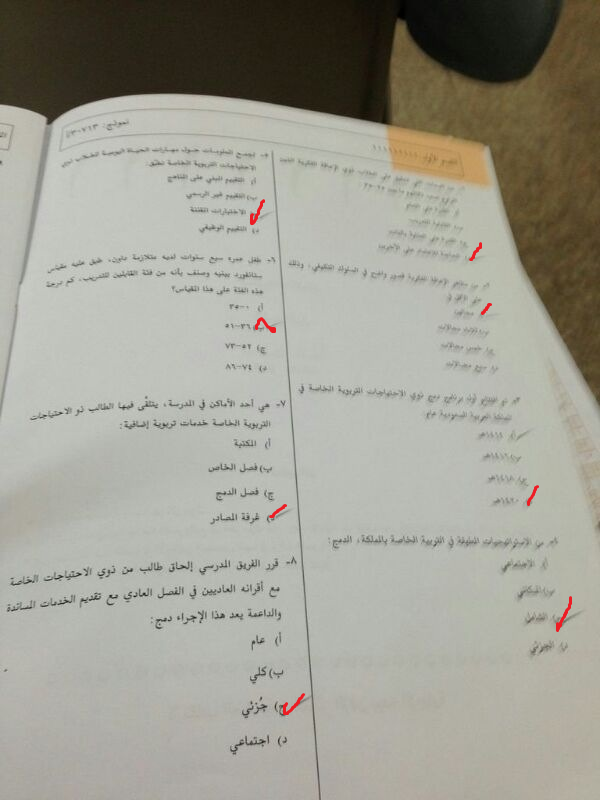 نموذج: ٧١٣-٣/أ
١١١١١١١١١
٥- لجمع المعلومات حول مهارات الحياة اليومية للطلاب ذوي
الاحتياجات التربوية الخاصة نطبّق:
أ) التقييم المبني على المناهج
ب) التقييم غير الرسمي
الاختبارات المقننة
د) التقييم الوظيفي
٦- طفل عمره سبع سنوات لديه متلازمة داون، طبق عليه مقياس
ستانفورد بينيه وصنف بأنه من فئة القابلين للتدريب، كم درجة
هذه الفئة على هذا المقياس؟
أ) ٠-٣٥
ب) ٣٦-٥١
ج) ٥٢-٧٣
د) ٧٤-٨٦
٧- هي أحد الأماكن في المدرسة، يتلقّى فيها الطالب ذو الاحتياجات
التربوية الخاصة خدمات تربوية إضافية:
أ) المكتبة
ب) فصل الخاص
ج) فصل الدمج
د) غرفة المصادر
٨- قرر الفريق المدرسي إلحاق طالب من ذوي الاحتياجات الخاصة
مع أقرانه العاديين في الفصل العادي مع تقديم الخدمات المساندة
والداعمة يعد هذا الإجراء دمج:
أ) عام
ب) كلي
ج) جُزئي
د) اجتماعي
من مظاهر الإعاقة الفكرية قصور واضح في السلوك التكيفي، وذلك
على الأقل في
مجالين
ج) خمس مجالات
برنامج دمج ذوي الاحتياجات التربوية الخاصة في
المملكة العربية السعودية عام:
ب) ١٤١٦هـ
ج) ١٤١٨هـ
١٤٢٠هـ
من الاستراتيجيات المطبقة في التربية الخاصة بالمملكة، الدمج:
أ) الاجتماعي
ب) المكاني
الشامل